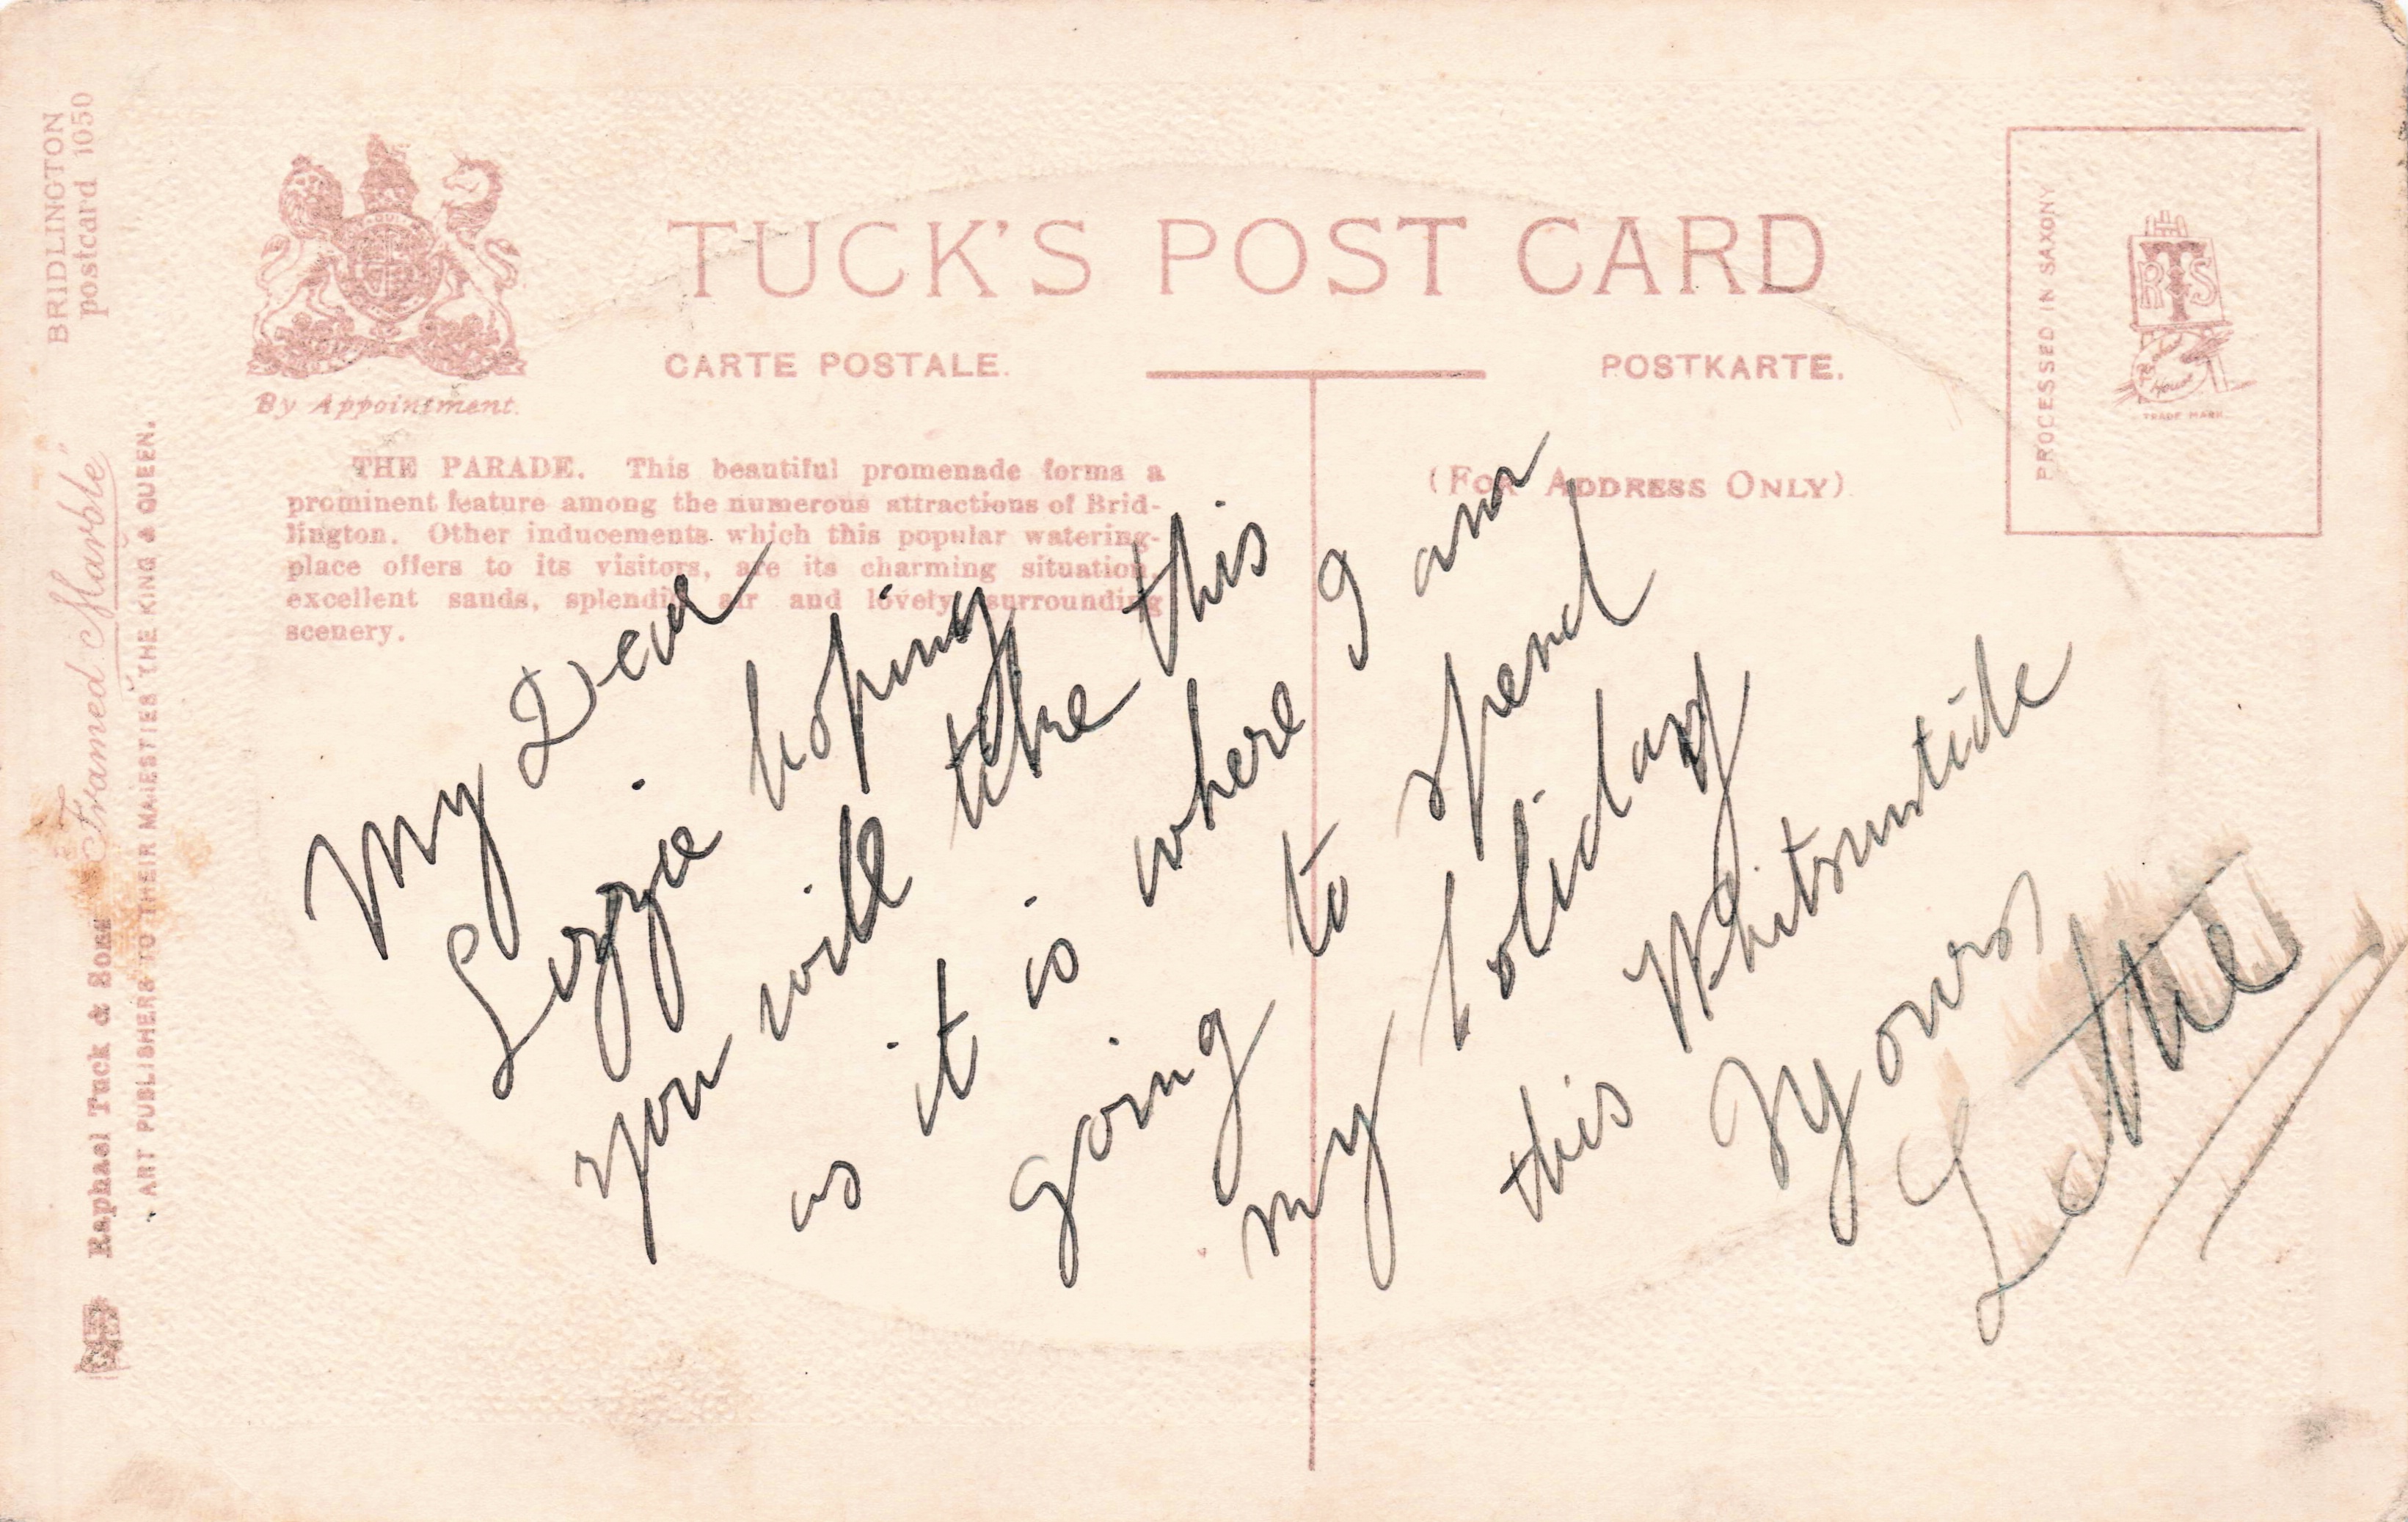 BRIDLINGTON
postcard 1050
"Framed Marble"
Raphael Tuck & Sons
ART PUBLISHERS TO THEIR MAJESTIES THE KING & QUEEN.
By Appointment.
TUCK'S POST CARD
CARTE POSTALE.
POSTKARTE.
THE PARADE. This beautiful promenade forms a
prominent feature among the numerous attractions of Brid-
lington. Other inducements which this popular watering-
place offers to its visitors, are its charming situation,
excellent sands, splendid air and lovely surrounding
scenery.
(FOR ADDRESS ONLY)
PROCESSED IN SAXONY
RTS
Raphael
House
TRADE MARK
My Dear
Lizzie hoping
you will take this
as it is where I am
going to spend
my holiday
this Whitsuntide
Yours